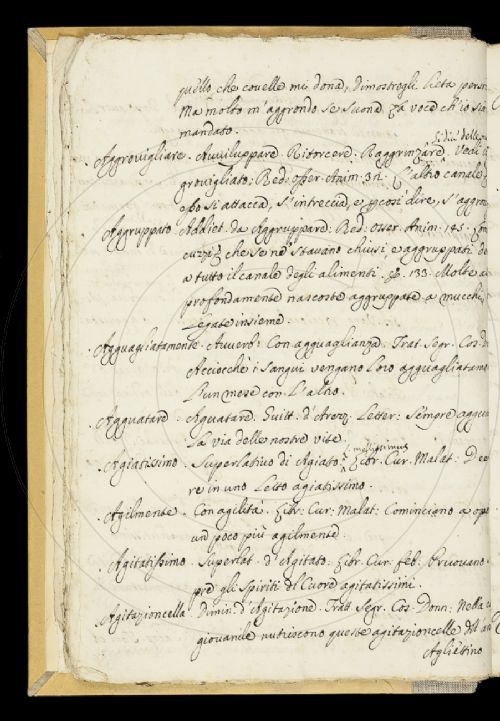 quello, che covelle mi dona, dimostregli lieta person
Ma molto m'aggrondo se suona la voce ch'io sia
mandato.
Si dice delle
Aggrovigliare. Avviluppare Ritorcere: Raggrinzare. Vedi
grovigliato, Red: osser. Anim: 31. L'altro canale
esso si attacca, s'intreccia, e p così dire, s'aggrov
Aggruppato Addiet. da Aggruppare: Red: osser. Anim: 145.
che se ne stavano chiusi, e aggruppati de
a tutto il canale degli alimenti. 133. Molte a
profondamente nascoste aggruppate a mucchi
Legate insieme.
Agguagliatamente. Avverb: Con agguaglianza. Trat. Segr. Cos. D
Acciocchè i sangui vengano loro agguagliatame
l'un mese con l'altro.
Agguatare. Aguatare. Guitt. d'Arezz. Letter: Sempre agguata
la via delle nostre vite.
mollissimus
Agiatissimo. Superlativo di Agiato: Libr. Cur. Malat: De e
re in uno Letto agiatissimo.
Agilmente. Con agilità. Libr: Cur: Malat: Cominciano a ope
un poco più agilmente.
Agitatissimo. Superlat. d'Agitato: Libr. Cur. feb. Pruovano
pre gli Spiriti del Cuore agitatissimi.
Agitazioncella. Dimin. d'Agitazione. Tratt. Segr. Cos. Donn: Nella
giovanile nutriscono queste agitazioncelle dell'an
Agliettino